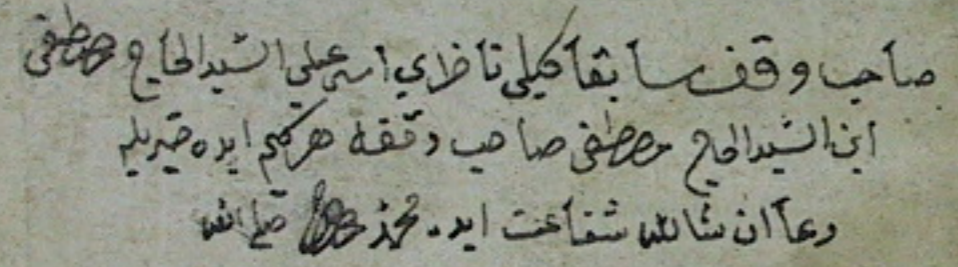 صاحب وقف سابقا كيلي ناظري اسمى علي السيد الحاج مصطفى
ابن السيد الحاج مصطفى صاحب وقفه هركيم ايده خيريله
دعا ان شالله شفاعت ايده محمد مصطفى صلى الله